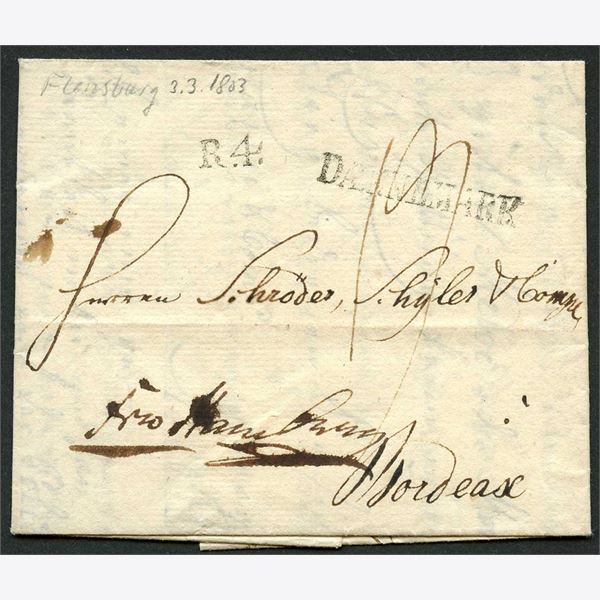 Flensburg 3.3.1803
R.4:
DÆNNEMARK
19
Herren Schröder, Schÿler & Comp
frco Hamburg
Bordeax